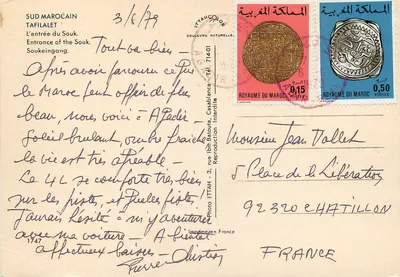 SUD MAROCAIN
TAFILALET
L'entrée du Souk.
Entrance of the Souk.
Soukeingang.
3/6/79
COULEURS NATURELLES
Tout va bien -
Après avoir parcouru ce que
le Maroc peut offrir de plus
beau, nous voici à Agadir
Soleil brulant, ombre fraîche
la vie est très agréable -
La 4L se comporte très bien
sur les pistes, et quelles pistes,
J'aurais hésité à m'y aventurer
avec ma voiture - A bientôt
affectueux baisers -
Pierre Christian
1747
Reproduction Interdite
المملكة المغربية
ROYAUME DU MAROC
0,15
المملكة المغربية
ROYAUME DU MAROC
0,50
Monsieur Jean Vallet
5 Place de la Libération
92320 CHATILLON
FRANCE